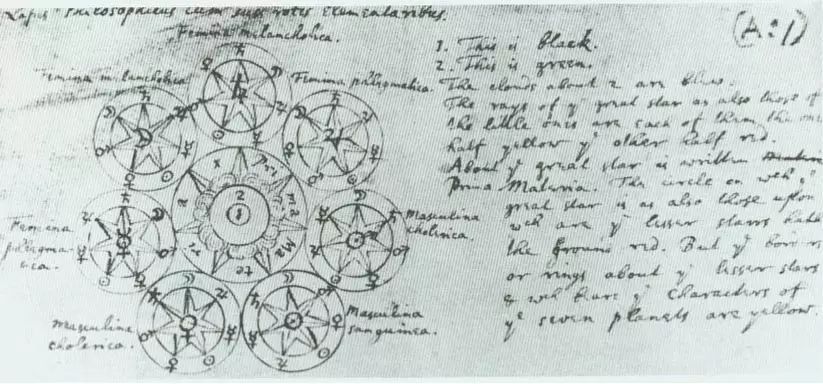 Lapis Philosophicus cum suis rotis Elementaribus.
(A:1)
Femina melancholica.
Femina melancholica
Femina phlegmatica.
Femina phlegmatica.
Masculina cholerica.
Masculina cholerica.
Masculina sanguinea.
Prima Materia
1
2
1. This is black.
2. This is green.
The clouds about 2 are blew.
The rays of yͤ great star as also those of
the little ones are each of them the one
half yellow yͤ other half red.
About yͤ great star is written
Prima Materia. The circle on wch yͤ
great star is as also those upon
wch are yͤ lesser starrs hath
the ground red. But yͤ borders
or rings about yͤ lesser stars
& wch beare yͤ characters of
yͤ seven planets are yellow.